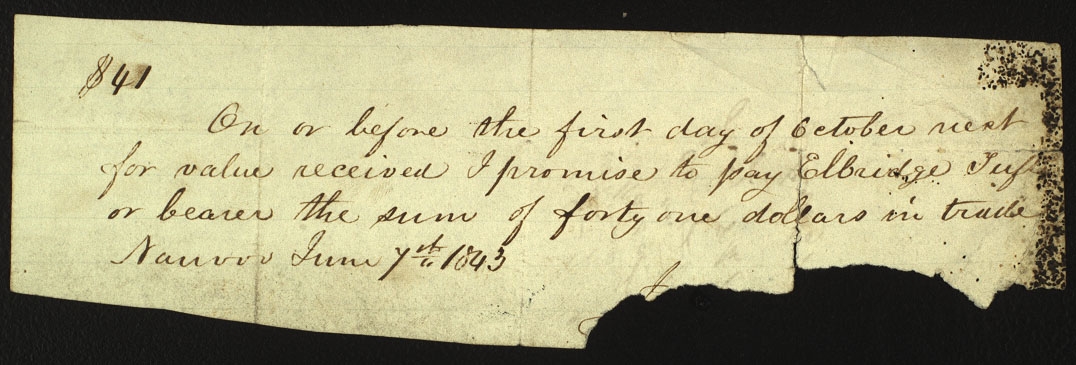 $41
On or before the first day of October next
for value received I promise to pay Elbridge Tuf
or bearer the sum of forty one dollars in trade
Nauvoo June 7th 1843